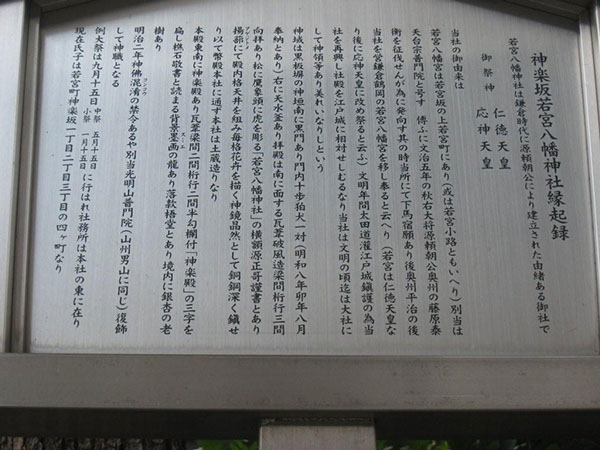 神楽坂若宮八幡神社縁起録
若宮八幡神社は鎌倉時代に源頼朝公により建立された由緒ある御社で
御祭神 仁徳天皇
応神天皇
当社の御由来は
若宮八幡宮は若宮坂の上若宮町にあり(或は若宮小路ともいへり)別当は
天台宗普門院と号す 傳ふに文治五年の秋右大将源頼朝公奥州の藤原泰
衡を征伐せんが為に発向す其の時当所にて下馬宿願あり後奥州平治の後
当社を営鎌倉鶴岡の若宮八幡宮を移し奉ると云へり(若宮は仁徳天皇な
り後に応神天皇に改め祭ると云ふ)文明年間太田道灌江戸城鎮護の為当
社を再興し社殿を江戸城に相対せしむるなり当社は文明の頃迄は大社に
して神領等あり美れいなりしという
神域は黒板塀の神垣南に黒門あり門内十歩狛犬一対(明和八年卯年八月
奉納とあり)右に天水釜あり拝殿は南に面する瓦葺破風造梁間桁行三間
向拝あり松に鷹象頭に虎を彫る「若宮八幡神社」の横額源正哥謹書とあり
揚蔀にて殿内格天井を組み毎格花卉を描く神鏡晶然として銅鋼深く鎖せ
り以て幣殿本社に通す本社は土蔵造りなり
本殿東南に神楽殿あり瓦葺梁間二間桁行二間半勾欄付「神楽殿」の三字を
扁し樵石敬書と読まる背景墨画の龍あり落款梧堂とあり境内に銀杏の老
樹あり
明治二年神佛混淆の禁令あるや別当光明山普門院(山州男山に同じ)復飾
して神職となる
例大祭は九月十五日 中祭 五月十五日 小祭 一月十五日 に行はれ社務所は本社の東に在り
現在氏子は若宮町神楽坂一丁目二丁目三丁目の四ヶ町なり